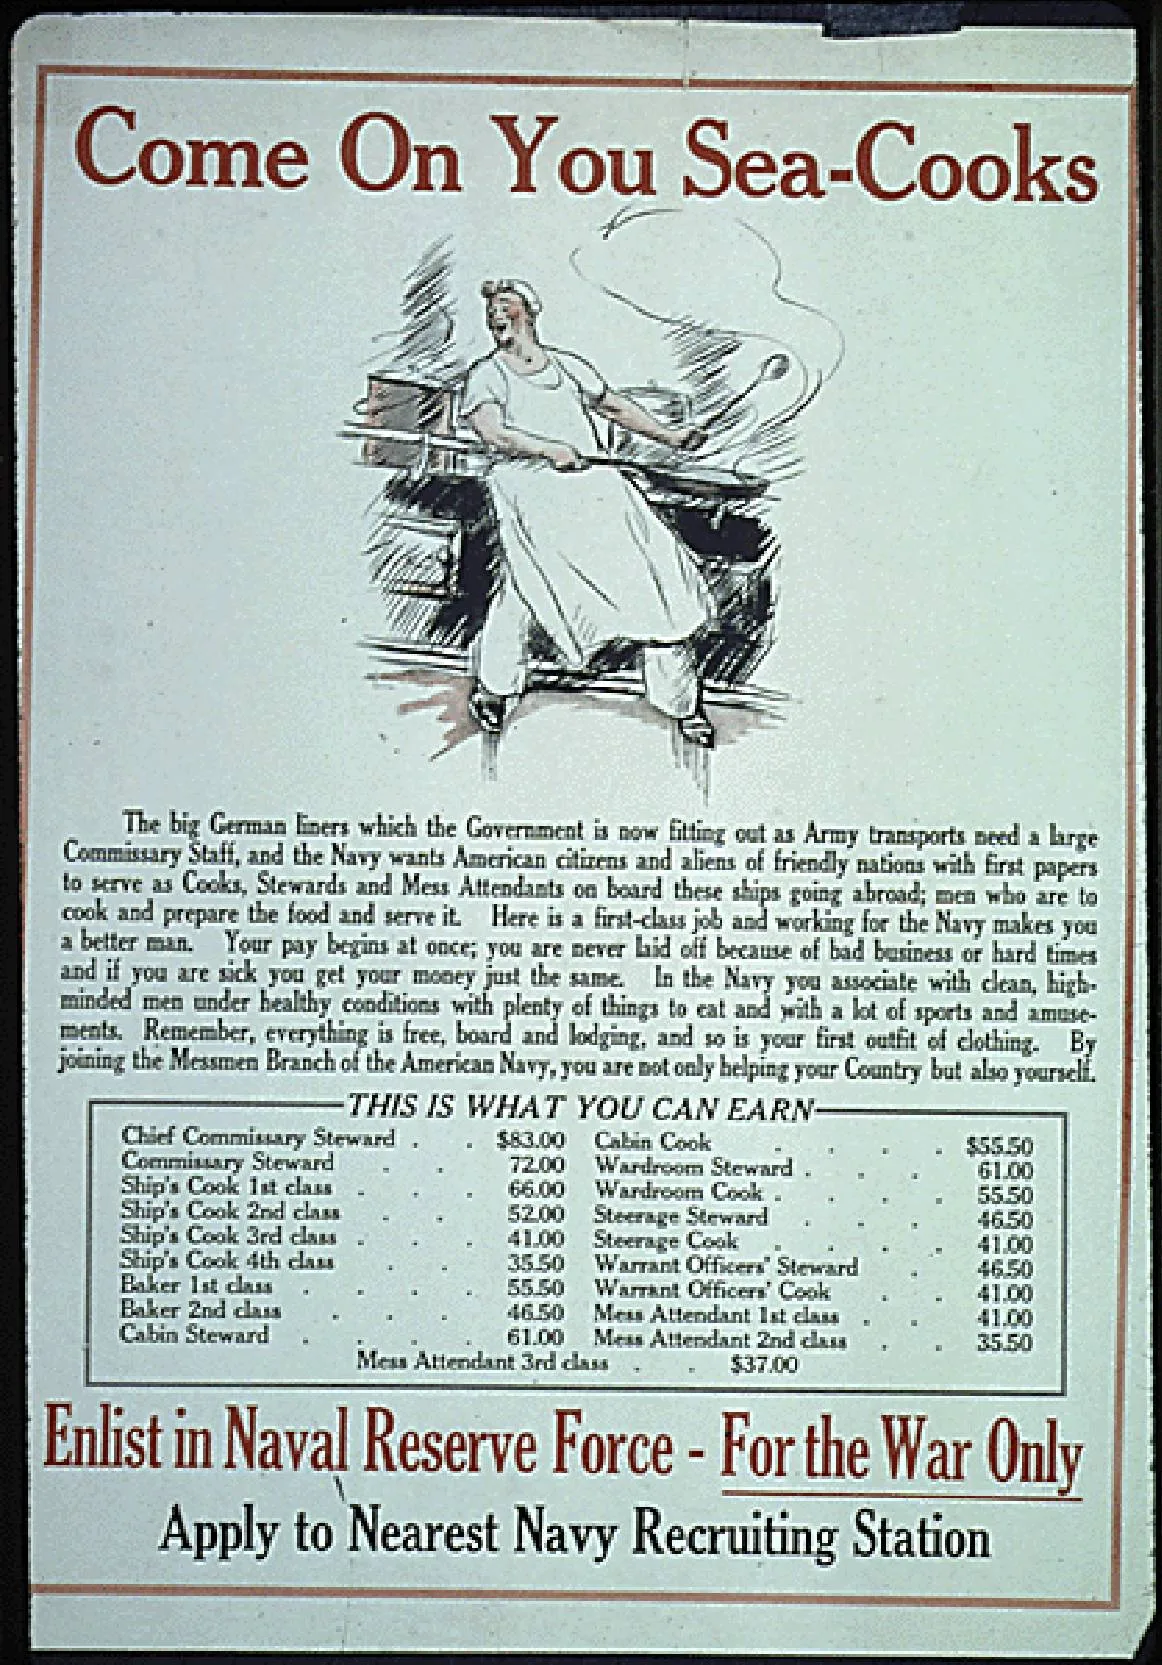 Come On You Sea-Cooks
The big German liners which the Government is now fitting out as Army transports need a large
Commissary Staff, and the Navy wants American citizens and aliens of friendly nations with first papers
to serve as Cooks, Stewards and Mess Attendants on board these ships going abroad; men who are to
cook and prepare the food and serve it. Here is a first-class job and working for the Navy makes you
a better man. Your pay begins at once; you are never laid off because of bad business or hard times
and if you are sick you get your money just the same. In the Navy you associate with clean, high-
minded men under healthy conditions with plenty of things to eat and with a lot of sports and amuse-
ments. Remember, everything is free, board and lodging, and so is your first outfit of clothing. By
joining the Messmen Branch of the American Navy, you are not only helping your Country but also yourself.
THIS IS WHAT YOU CAN EARN
Chief Commissary Steward . . $83.00
Commissary Steward . . 72.00
Ship's Cook 1st class . . . 66.00
Ship's Cook 2nd class . . 52.00
Ship's Cook 3rd class . . . 41.00
Ship's Cook 4th class . . 35.50
Baker 1st class . . . . 55.50
Baker 2nd class . . . 46.50
Cabin Steward . . . . 61.00
Cabin Cook . . . . $55.50
Wardroom Steward . . . 61.00
Wardroom Cook . . . . 55.50
Steerage Steward . . . 46.50
Steerage Cook . . . . 41.00
Warrant Officers' Steward . 46.50
Warrant Officers' Cook . . 41.00
Mess Attendant 1st class . . 41.00
Mess Attendant 2nd class . . 35.50
Mess Attendant 3rd class . . $37.00
Enlist in Naval Reserve Force - For the War Only
Apply to Nearest Navy Recruiting Station